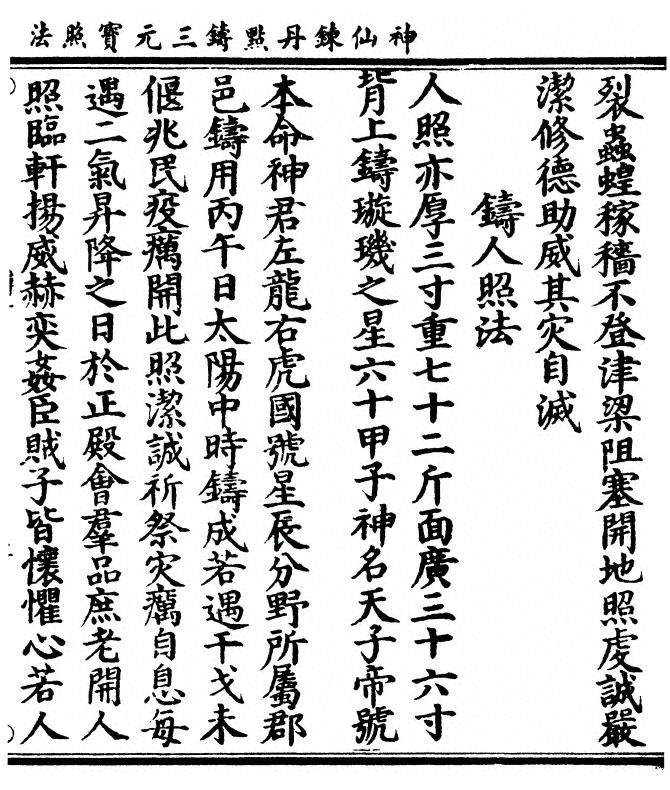 神仙鍊丹點鑄三元寶照法
裂蟲蝗稼穡不登津梁阻塞開地照虔誠嚴
潔修德助威其灾自滅
鑄人照法
人照亦厚三寸重七十二斤面廣三十六寸
背上鑄璇璣之星六十甲子神名天子帝號
本命神君左龍右虎國號星辰分野所屬郡
邑鑄用丙午日太陽中時鑄成若遇干戈未
偃兆民疫癘開此照潔誠祈祭灾癘自息每
遇二氣昇降之日於正殿會羣品庶老開人
照臨軒揚威赫奕姦臣賊子皆懷懼心若人